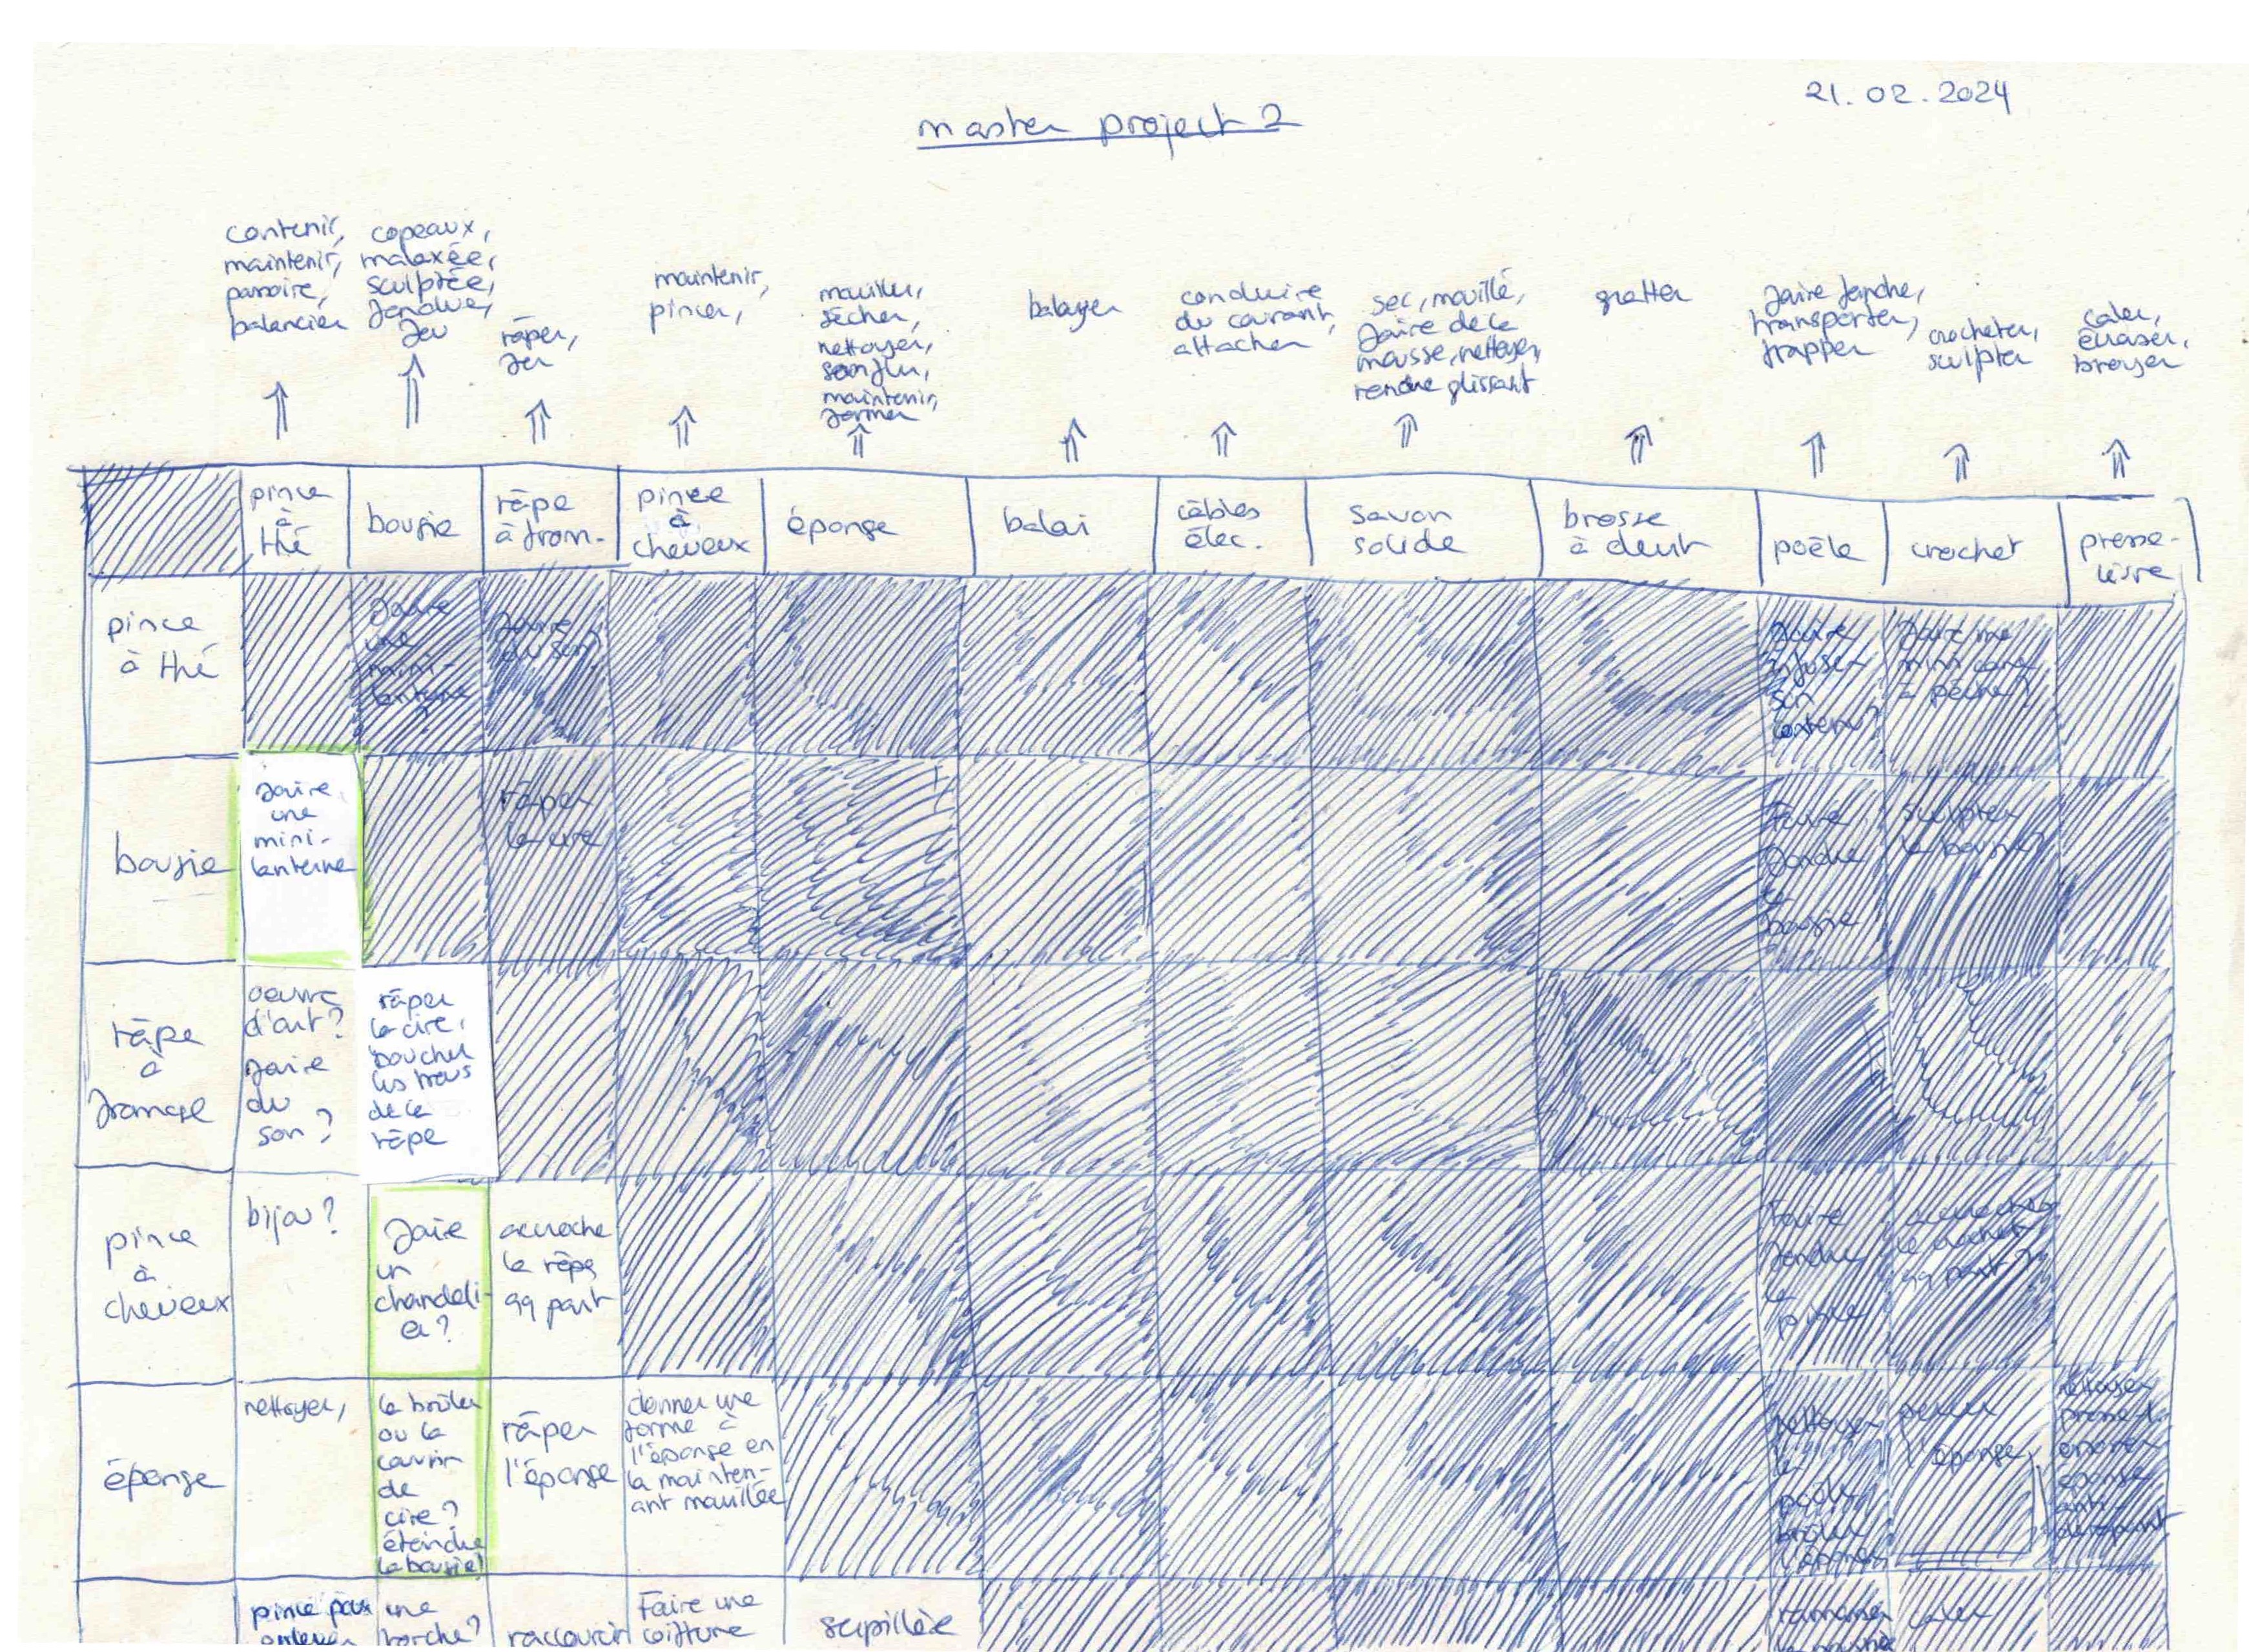 21.02.2024
master project 2
contenir,
maintenir,
passoire,
balancier
copeaux,
malaxée,
sculptée,
fondue,
feu
râper,
fer
maintenir,
pincer,
mouiller,
sécher,
nettoyer,
gonfler,
maintenir,
former
balayer
conduire
du courant,
attacher
sec, mouillé,
faire de la
mousse, nettoyer,
rendre glissant
gratter
faire fondre,
transporter,
frapper
crocheter,
sculpter
caler,
écraser,
broyer
pince
à
thé
bougie
râpe
à from.
pince
à
cheveux
éponge
balai
câbles
élec.
savon
solide
brosse
à dent
poêle
crochet
presse-
livre
pince
à thé
faire
une
mini-
lanterne
?
faire
du son?
faire
infuser
son
contenu?
faire une
mini cane
à pêche?
bougie
faire
une
mini-
lanterne
râper
la cire
faire
fondre
la
bougie
sculpter
la bougie?
râpe
à
fromage
oeuvre
d'art?
faire
du
son?
râper
la cire,
boucher
les trous
de la
râpe
pince
à
cheveux
bijou?
faire
un
chandeli-
er?
accroche
la râpe
qq part
faire
fondre
la
pince
accrocher
le crochet
qq part?
éponge
nettoyer,
la brûler
ou la
couvrir
de
cire?
éteindre
la bougie!
râper
l'éponge
donner une
forme à
l'éponge en
la mainten-
ant mouillée
nettoyer
la
poêle
brûler
l'éponge
percer
l'éponge
nettoyer
presse-l.
éponge
anti-
dérapant
pince pour
enlever
une
torche?
raccourcir
Faire une
coiffure
serpillère
ramasser
caler